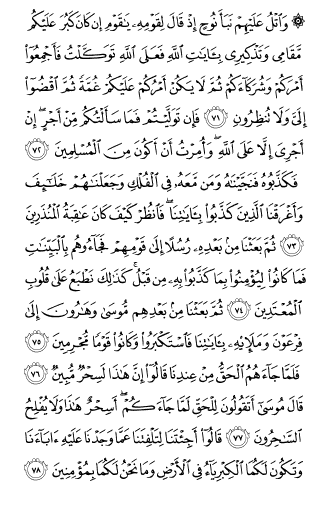 ۞ وَٱتْلُ عَلَيْهِمْ نَبَأَ نُوحٍ إِذْ قَالَ لِقَوْمِهِۦ يَٰقَوْمِ إِن كَانَ كَبُرَ عَلَيْكُم
مَّقَامِى وَتَذْكِيرِى بِـَٔايَٰتِ ٱللَّهِ فَعَلَى ٱللَّهِ تَوَكَّلْتُ فَأَجْمِعُوٓا۟
أَمْرَكُمْ وَشُرَكَآءَكُمْ ثُمَّ لَا يَكُنْ أَمْرُكُمْ عَلَيْكُمْ غُمَّةً ثُمَّ ٱقْضُوٓا۟
إِلَىَّ وَلَا تُنظِرُونِ ٧١ فَإِن تَوَلَّيْتُمْ فَمَا سَأَلْتُكُم مِّنْ أَجْرٍ ۖ إِنْ
أَجْرِىَ إِلَّا عَلَى ٱللَّهِ ۖ وَأُمِرْتُ أَنْ أَكُونَ مِنَ ٱلْمُسْلِمِينَ ٧٢
فَكَذَّبُوهُ فَنَجَّيْنَٰهُ وَمَن مَّعَهُۥ فِى ٱلْفُلْكِ وَجَعَلْنَٰهُمْ خَلَٰٓئِفَ
وَأَغْرَقْنَا ٱلَّذِينَ كَذَّبُوا۟ بِـَٔايَٰتِنَا ۖ فَٱنظُرْ كَيْفَ كَانَ عَٰقِبَةُ ٱلْمُنذَرِينَ
٧٣ ثُمَّ بَعَثْنَا مِنۢ بَعْدِهِۦ رُسُلًا إِلَىٰ قَوْمِهِمْ فَجَآءُوهُم بِٱلْبَيِّنَٰتِ
فَمَا كَانُوا۟ لِيُؤْمِنُوا۟ بِمَا كَذَّبُوا۟ بِهِۦ مِن قَبْلُ ۚ كَذَٰلِكَ نَطْبَعُ عَلَىٰ قُلُوبِ
ٱلْمُعْتَدِينَ ٧٤ ثُمَّ بَعَثْنَا مِنۢ بَعْدِهِم مُّوسَىٰ وَهَٰرُونَ إِلَىٰ
فِرْعَوْنَ وَمَلَإِي۟هِۦ بِـَٔايَٰتِنَا فَٱسْتَكْبَرُوا۟ وَكَانُوا۟ قَوْمًا مُّجْرِمِينَ ٧٥
فَلَمَّا جَآءَهُمُ ٱلْحَقُّ مِنْ عِندِنَا قَالُوٓا۟ إِنَّ هَٰذَا لَسِحْرٌ مُّبِينٌ ٧٦
قَالَ مُوسَىٰٓ أَتَقُولُونَ لِلْحَقِّ لَمَّا جَآءَكُمْ ۖ أَسِحْرٌ هَٰذَا وَلَا يُفْلِحُ
ٱلسَّٰحِرُونَ ٧٧ قَالُوٓا۟ أَجِئْتَنَا لِتَلْفِتَنَا عَمَّا وَجَدْنَا عَلَيْهِ ءَابَآءَنَا
وَتَكُونَ لَكُمَا ٱلْكِبْرِيَآءُ فِى ٱلْأَرْضِ وَمَا نَحْنُ لَكُمَا بِمُؤْمِنِينَ ٧٨